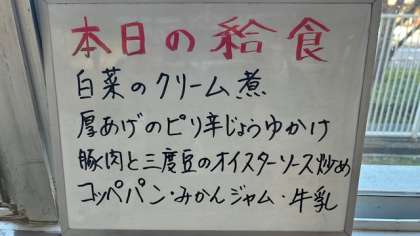 本日の給食
白菜のクリーム煮
厚あげのピリ辛じょうゆかけ
豚肉と三度豆のオイスターソース炒め
コッペパン・みかんジャム・牛乳